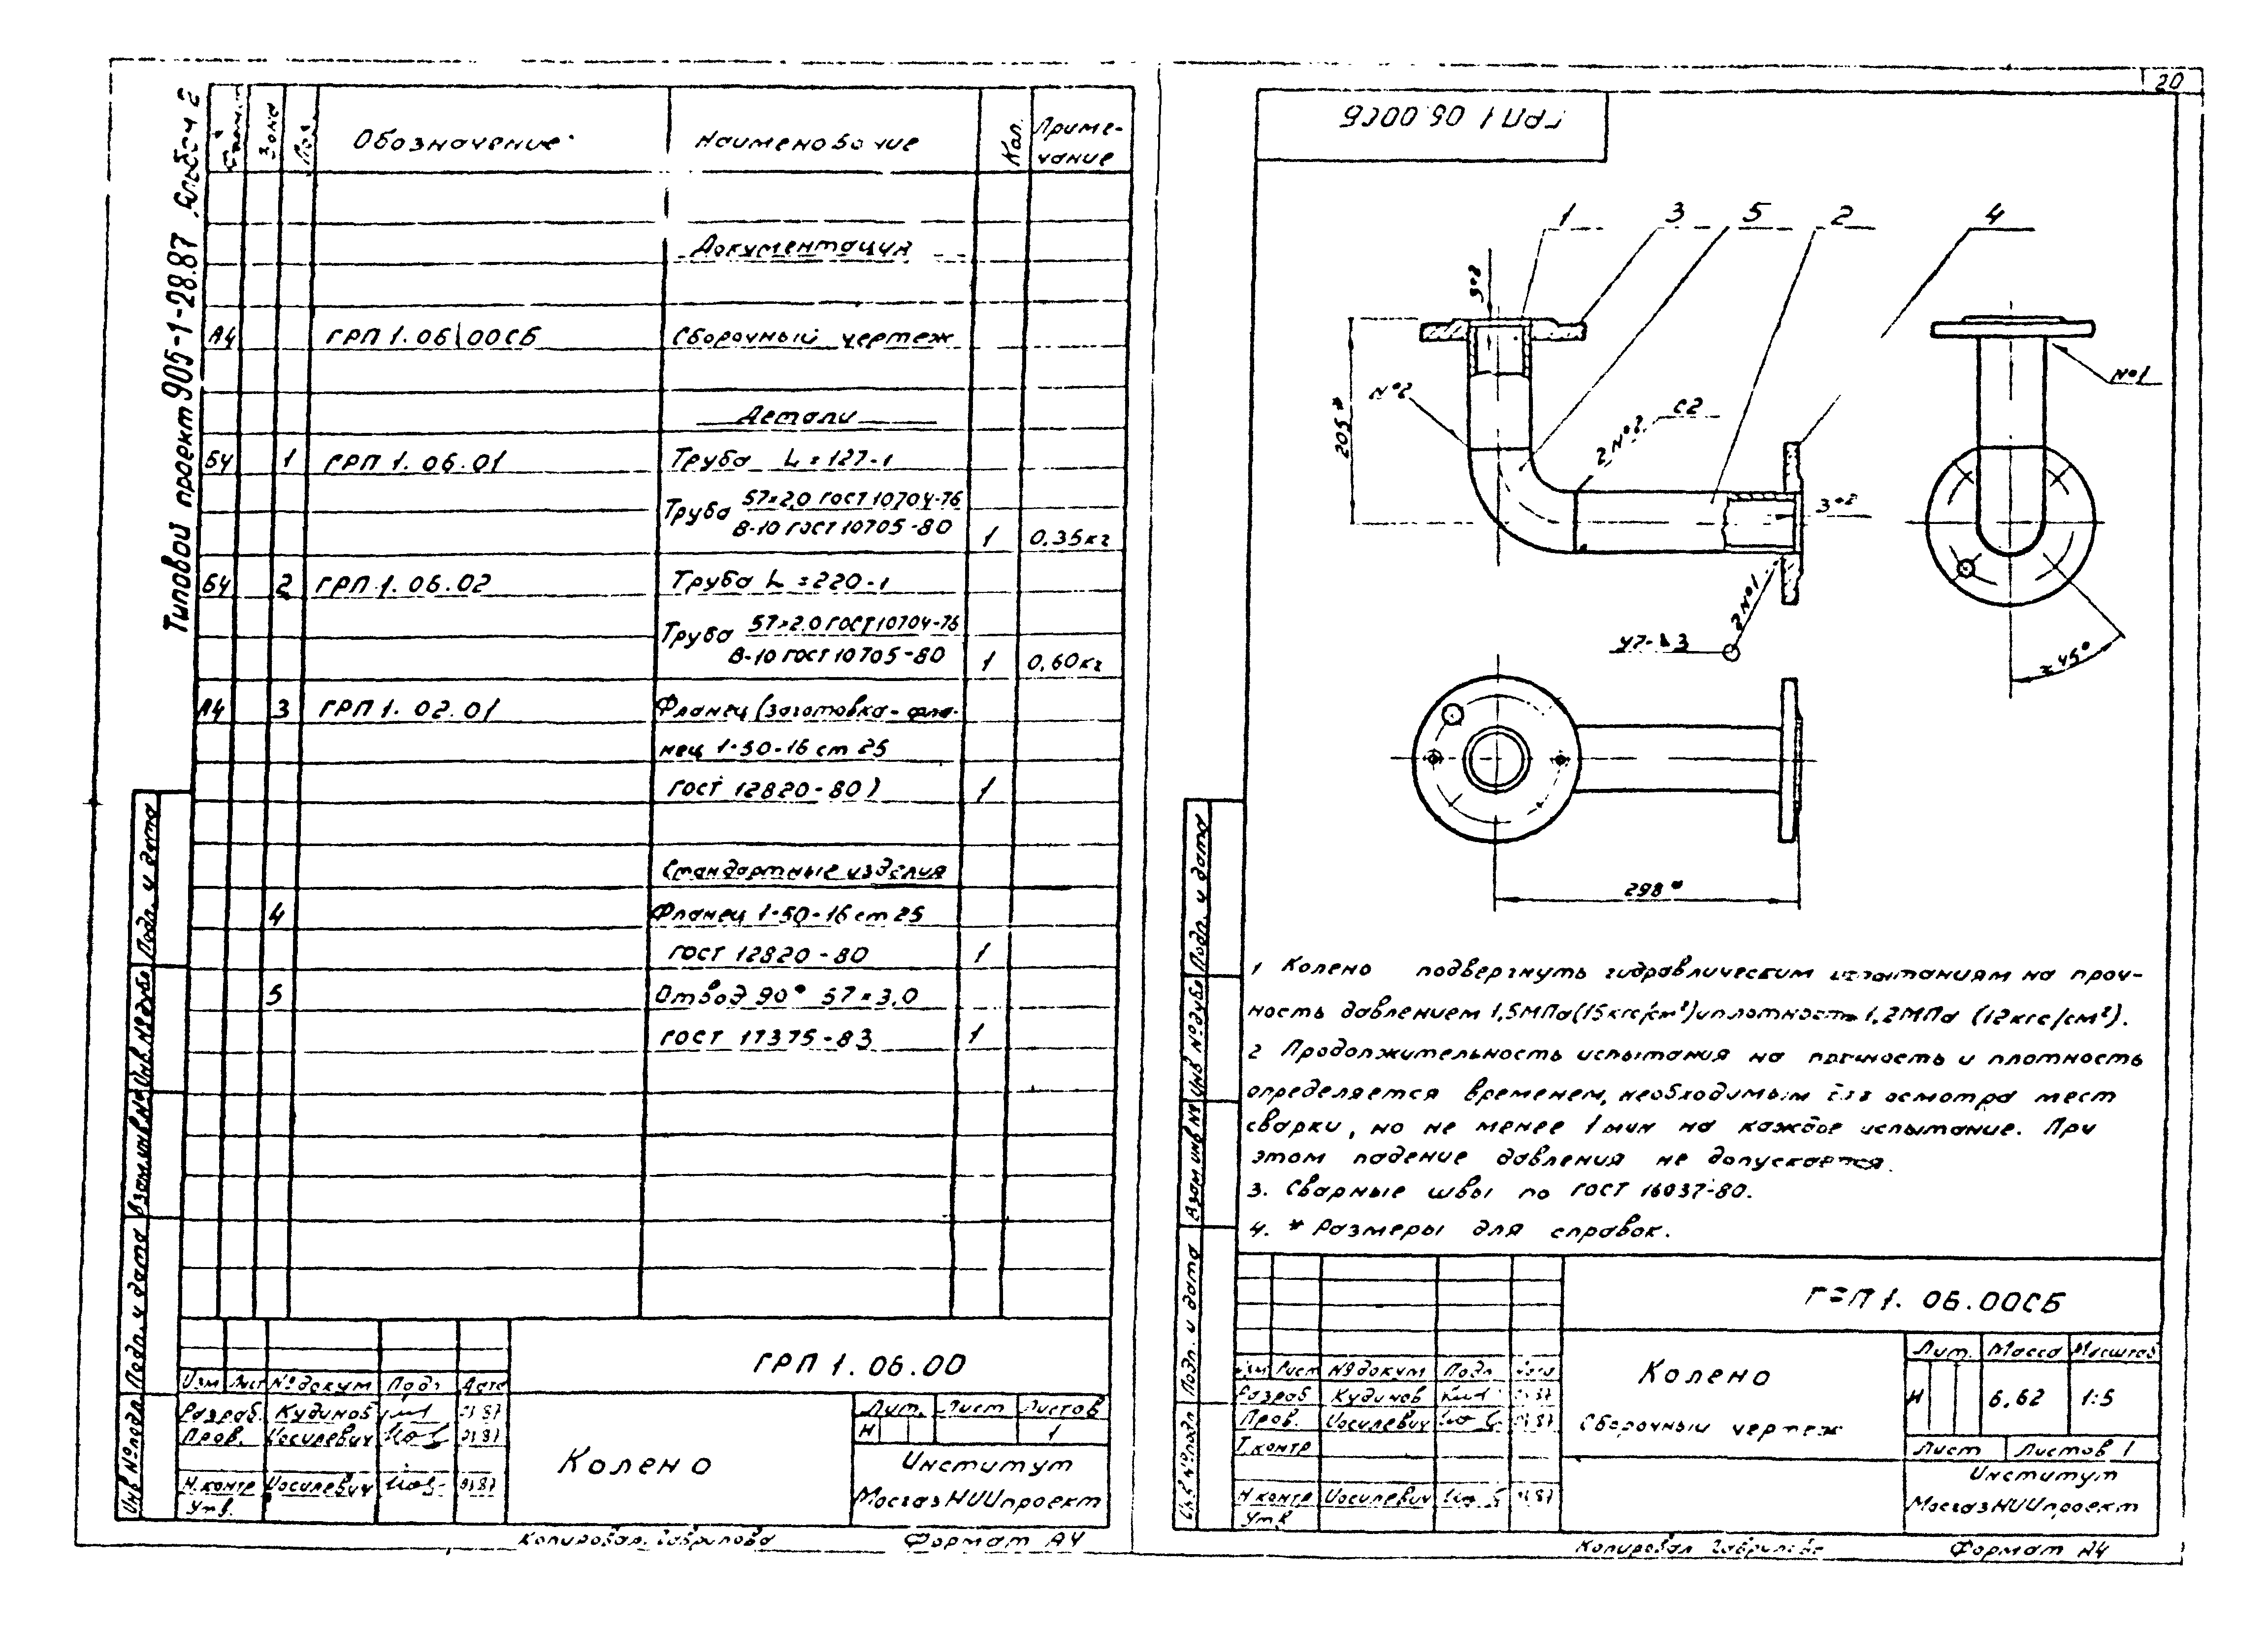 20
Типовой проект 905-1-28.87 Альбом 2
Зона
Поз.
Обозначение
Наименование
Кол.
Приме-
чание
Документация
А4 ГРП 1. 06.00СБ Сборочный чертеж
Детали
БЧ 1 ГРП 1. 06.01 Труба L = 127-1
Труба 57×2,0 ГОСТ 10704-76
В-10 ГОСТ 10705-80 1 0,35кг
БЧ 2 ГРП 1. 06.02 Труба L = 220-1
Труба 57×2.0 ГОСТ 10704-76
В-10 ГОСТ 10705-80 1 0,60кг
А4 3 ГРП 1. 02.01 Фланец (заготовка-фла-
нец 1-50-16 ст 25
ГОСТ 12820-80) 1
Стандартные изделия
4 Фланец 1-50-16 ст 25
ГОСТ 12820-80 1
5 Отвод 90° 57×3,0
ГОСТ 17375-83 1
Инв № подл Подп. и дата Взам инв № Инв № дубл Подп. и дата
ГРП 1. 06.00
Изм Лист № докум Подп Дата
Разраб. Кудинов 87
Пров. Иосилевич 87
Н.контр Иосилевич 87
Утв.
Колено
Лит. Лист Листов
Н 1
Институт
МосгазНИИпроект
Копировал Гаврилова Формат А4
ГРП 1 06.00СБ
1 3 5 2 4
3+2
205*
№2
2 №2 С2
3+2
2 №1
№1
45°
298*
1 Колено подвергнуть гидравлическим испытаниям на проч-
ность давлением 1,5МПа (15кгс/см²) и плотность 1,2МПа (12кгс/см²).
2 Продолжительность испытания на прочность и плотность
определяется временем, необходимым для осмотра мест
сварки, но не менее 1 мин на каждое испытание. При
этом падение давления не допускается.
3. Сварные швы по ГОСТ 16037-80.
4. * Размеры для справок.
Инв № подл Подп. и дата Взам инв № Инв № дубл Подп. и дата
ГРП 1. 06.00СБ
Изм Лист № докум Подп Дата
Разраб Кудинов 87
Пров. Иосилевич 87
Т.контр
Н контр Иосилевич 87
Утв
Колено
Сборочный чертеж
Лит. Масса Масштаб
Н 6.62 1:5
Лист Листов 1
Институт
МосгазНИИпроект
Копировал Гаврилова Формат А4